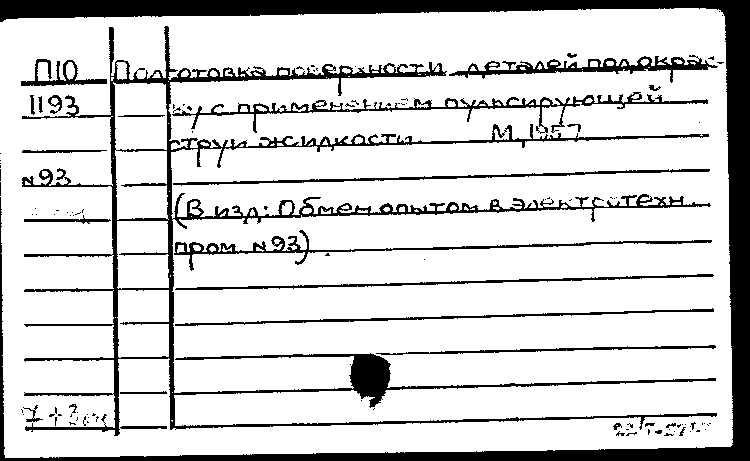 П10 Подготовка поверхности деталей подокрас-
1193 ку с применением пульсирующей
струи жидкости. М, 1957
№93.
(В изд: Обмен опытом в электротехн.
пром. №93).
7 + 3